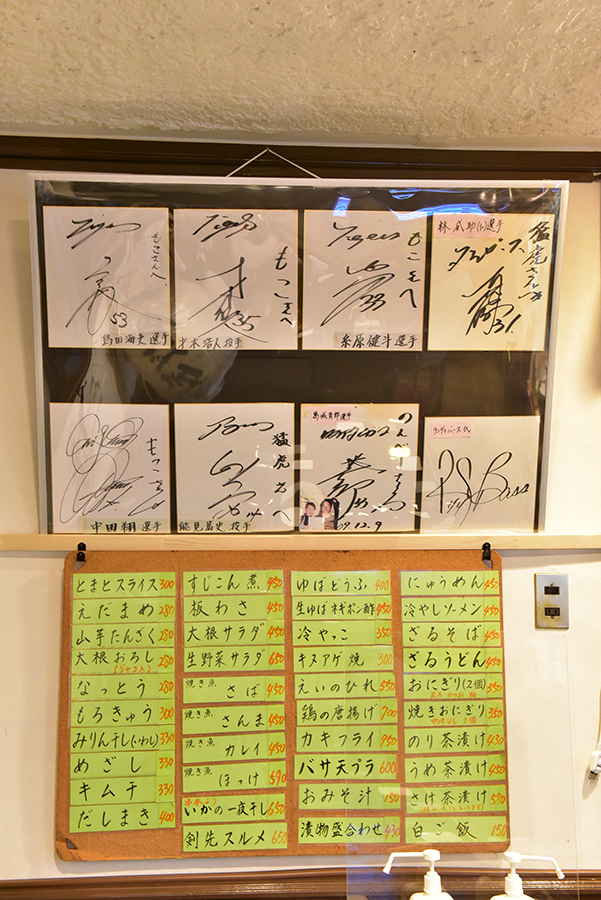 Tigers
もこさんへ
53
島田海吏選手
Tigers
もこさんへ
35
才木浩人投手
Tigers
もこさんへ
33
糸原健斗選手
林威助(リン)選手
猛虎さんへ
31
もこさん
中田翔選手
猛虎さんへ
能見篤史投手
葛城育郎選手
12.9
ランディバース氏
R Bass
とまとスライス 300
えだまめ 280
山芋たんざく 280
大根おろし 280
(ジャコ入)
なっとう 280
もろきゅう 300
みりん干し(いわし) 330
めざし 330
キムチ 330
だしまき 400
すじこん煮 450
板わさ 450
大根サラダ 450
生野菜サラダ 650
焼き魚 さば 450
焼き魚 さんま 450
焼き魚 カレイ 450
焼き魚 ほっけ 590
いかの一夜干し 650
剣先スルメ 650
ゆばどうふ 400
生ゆばネギポン酢 450
冷やっこ 350
キヌアゲ焼 300
えいのひれ 550
鶏の唐揚げ 700
カキフライ 950
バサ天プラ 600
おみそ汁 150
漬物盛合わせ 430
にゅうめん 450
冷やしソーメン 450
ざるそば 450
ざるうどん 450
おにぎり(2個) 350
焼きおにぎり 350
のり茶漬け 430
うめ茶漬け 450
さけ茶漬け 530
白ご飯 150